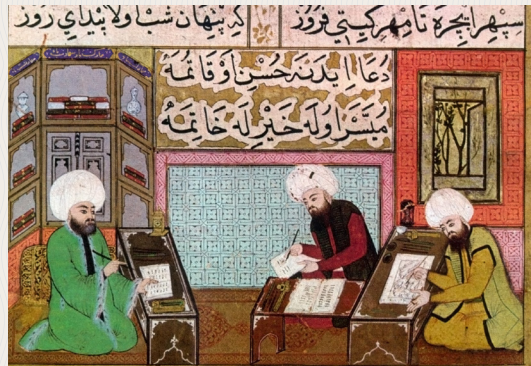 سپهر ایچره تا مهر كیتي فروز
كه پنهان شب اولا پیداي روز
دعا ایدنه حسن اوقاتمه
میسر اوله خیر له خاتمه